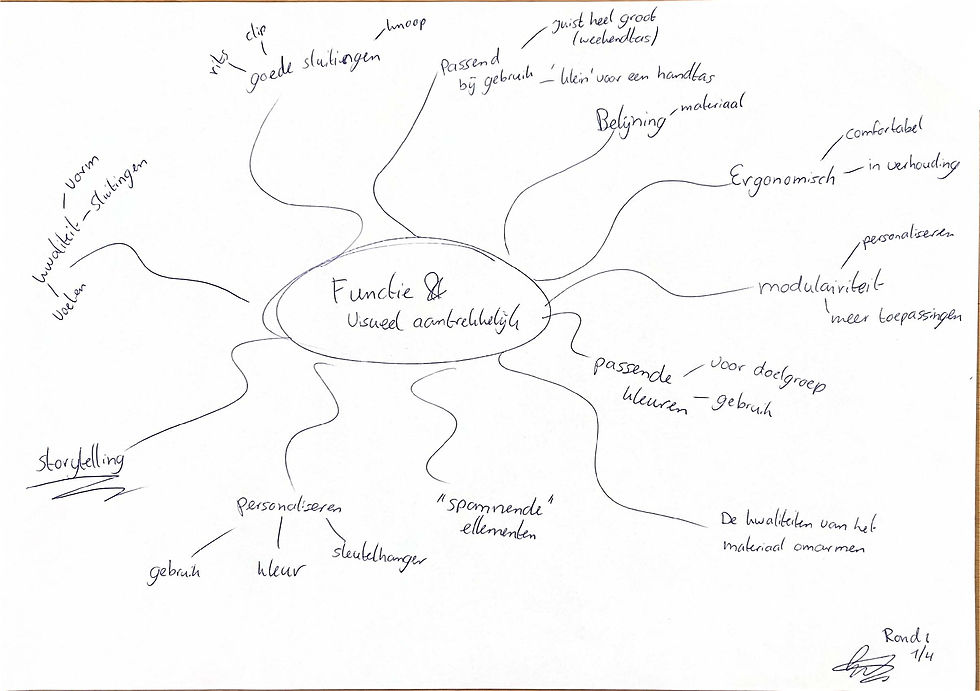 Functie &
Visueel aantrekkelijk
goede sluitingen
rits
clip
knoop
Passend
bij gebruik
Juist heel groot
(weekendtas)
'klein' voor een handtas
Belijning
materiaal
Ergonomisch
comfortabel
in verhouding
modulairiteit
personaliseren
meer toepassingen
passende
kleuren
voor doelgroep
gebruik
De kwaliteiten van het
materiaal omarmen
"spannende"
ellementen
personaliseren
gebruik
kleur
sleutelhanger
storytelling
kwaliteit
vorm
sluitingen
voelen
Rond 1
1/4